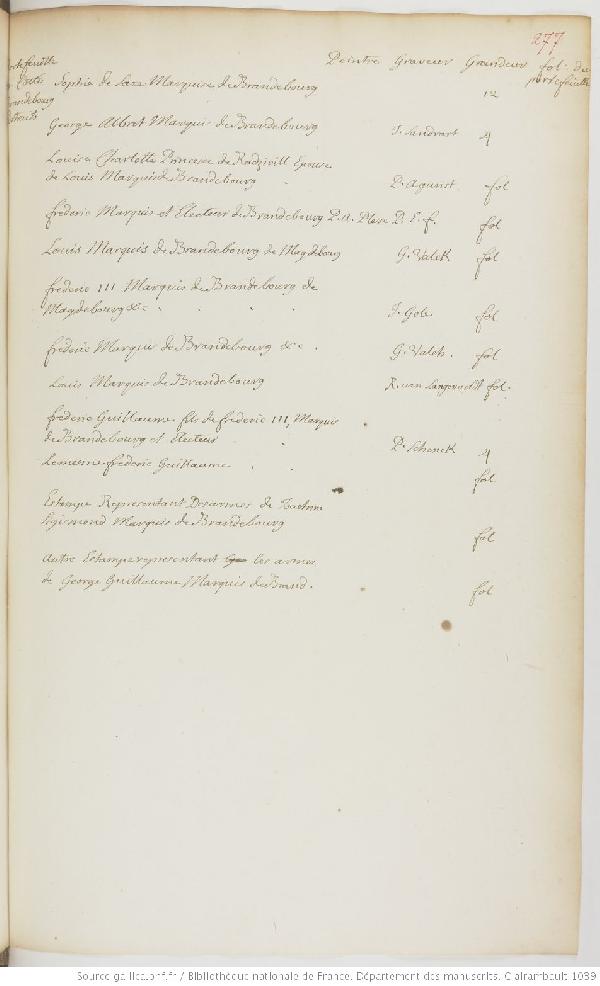 277
Peintre Graveur Grandeur fol. du
portefeuille
Sophie de Saxe Marquise de Brandebourg 12
George Albret Marquis de Brandebourg J. Sandrart 4
Louise Charlotte Princesse de Radzivill Epouse
de Louis Marquis de Brandebourg P. Aquirst. fol
frederic Marquis et Electeur de Brandebourg P. A. fol
Louis Marquis de Brandebourg de Magdebourg G. Valck fol
frederic III Marquis de Brandebourg de
Magdebourg &c. J. Gole fol
frederic Marquis de Brandebourg &c. G. Valck. fol
Louis Marquis de Brandebourg R. van Langervelt fol.
frederic Guillaume fils de frederic III, Marquis
de Brandebourg et Electeur P. Schenck 4
Lemesme frederic Guillaume fol
Estampe Representant Des armes de
Sigismond Marquis de Brandebourg fol
Autre Estampe representant les armes
de George Guillaume Marquis de Brand. fol
Source gallica.bnf.fr / Bibliothèque nationale de France. Département des manuscrits. Clairambault 1039